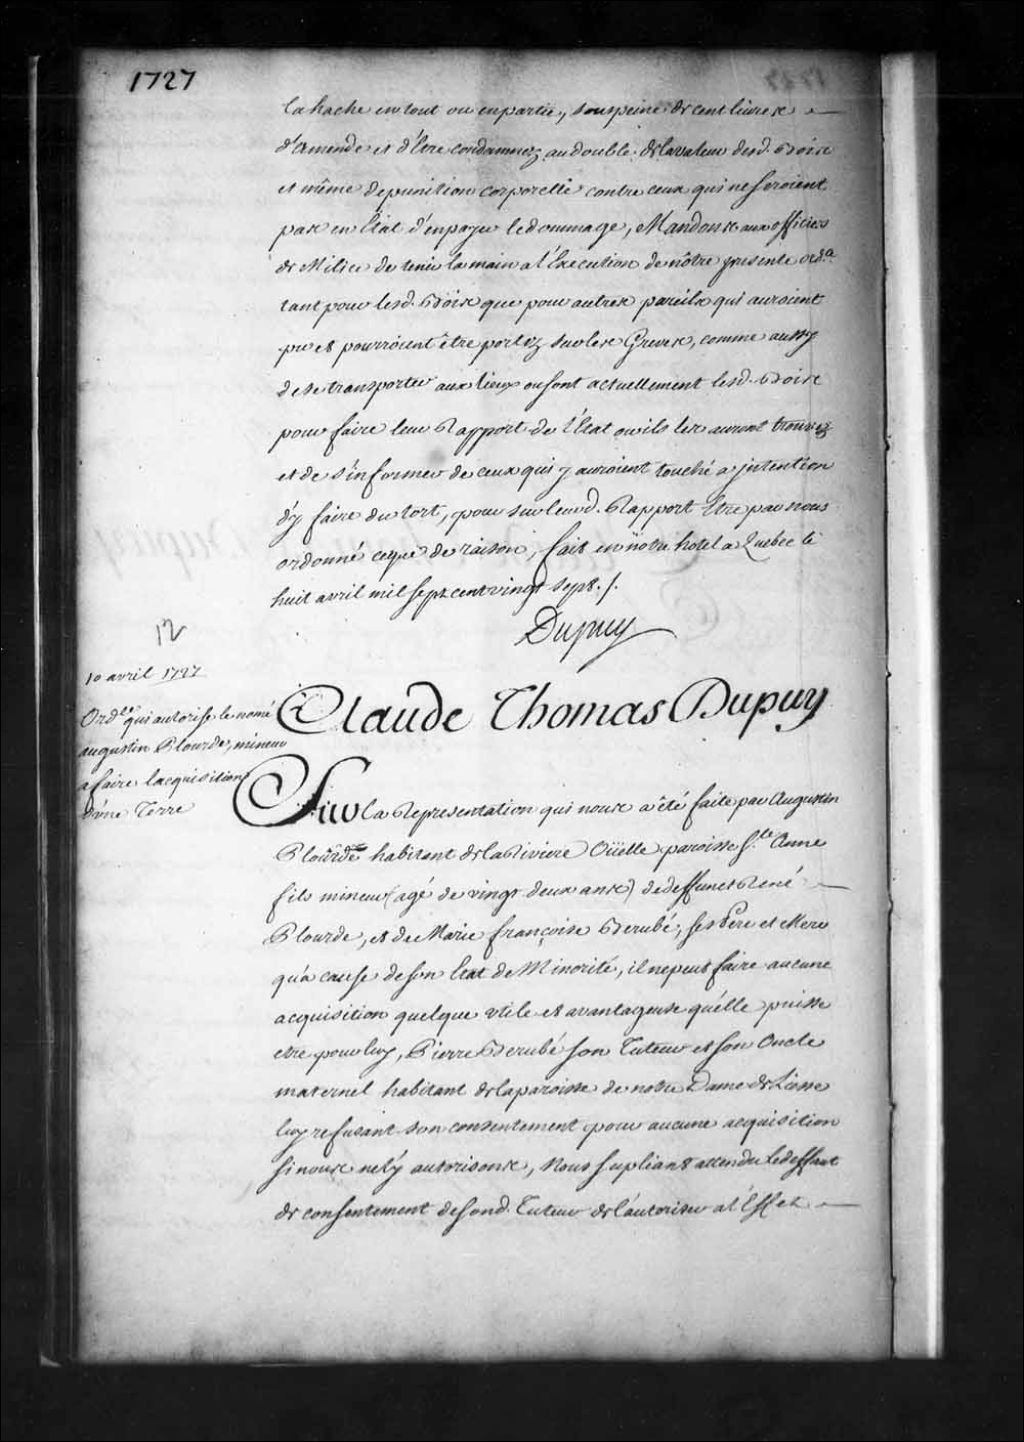 1727
la hache en tout ou en partie, sous peine de cent livres
d'amende et d'être condamnez au double de la valeur desd. Bois
et même de punition corporelle contre ceux qui ne seroient
pas en État d'en payer le dommage, Mandons aux officiers
de Milice de tenir la main a l'Execution de nôtre presente ord.ce
tant pour lesd. Bois que pour autres pareils qui auroient
pu et pourroient être portez sur les Greves, comme aussy
de se transporter aux lieux ou sont actuellement lesd. Bois
pour faire leur Rapport de l'État ou ils les auront trouvez
et de s'informer de ceux qui y auroient touché a jntention
d'y faire du tort, pour sur leurd. Rapport Être par nous
ordonné ceque de raison, fait en nôtre hotel a Quebec le
huit avril mil sept cent vingt sept ./.
Dupuy
12
10 avril 1727
Ord.ce qui autorise le nomé
augustin Plourde, mineur
a faire lacquisition
d'une Terre
Claude Thomas Dupuy
Sur la Representation qui nous a été faite par Augustin
Plourde habitant de la Riviere Oüelle paroisse S.te Anne
fils mineur (agé de vingt deux ans) de deffunct René
Plourde, et de Marie françoise Berubé, ses Pere et Mere
qu'a cause de son État de Minorité, il ne peut faire aucune
acquisition quelque vtile et avantageuse qu'elle puisse
etre pour luy, Pierre Berubé son Tuteur et son Oncle
maternel habitant de la paroisse de notre Dame de Liesse
luy refusant son consentement pour aucune acquisition
si nous ne l'y autorisons, Nous supliant attendu le deffaut
de consentement de sond. Tuteur de l'autoriser a l'Effet